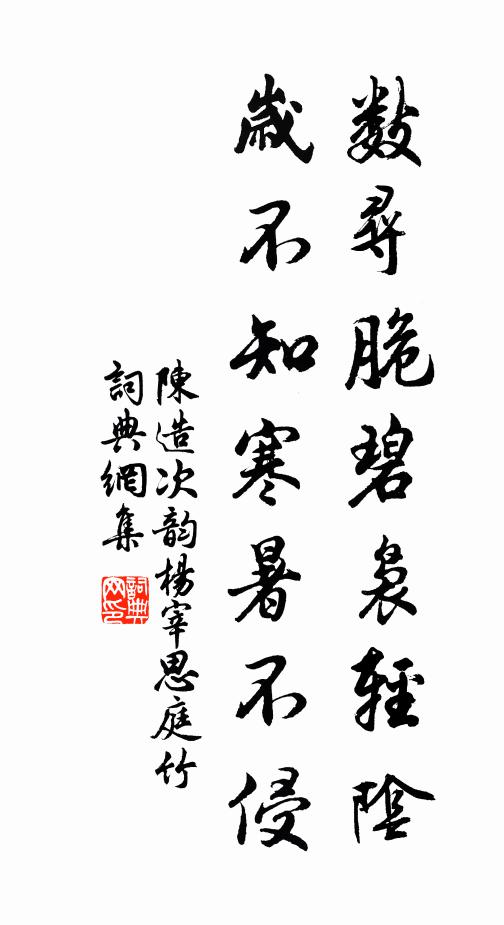 數尋脆碧裊輕陰
歲不知寒暑不侵
陳造次韵楊宰思庭竹
詞典網集
詞典網印